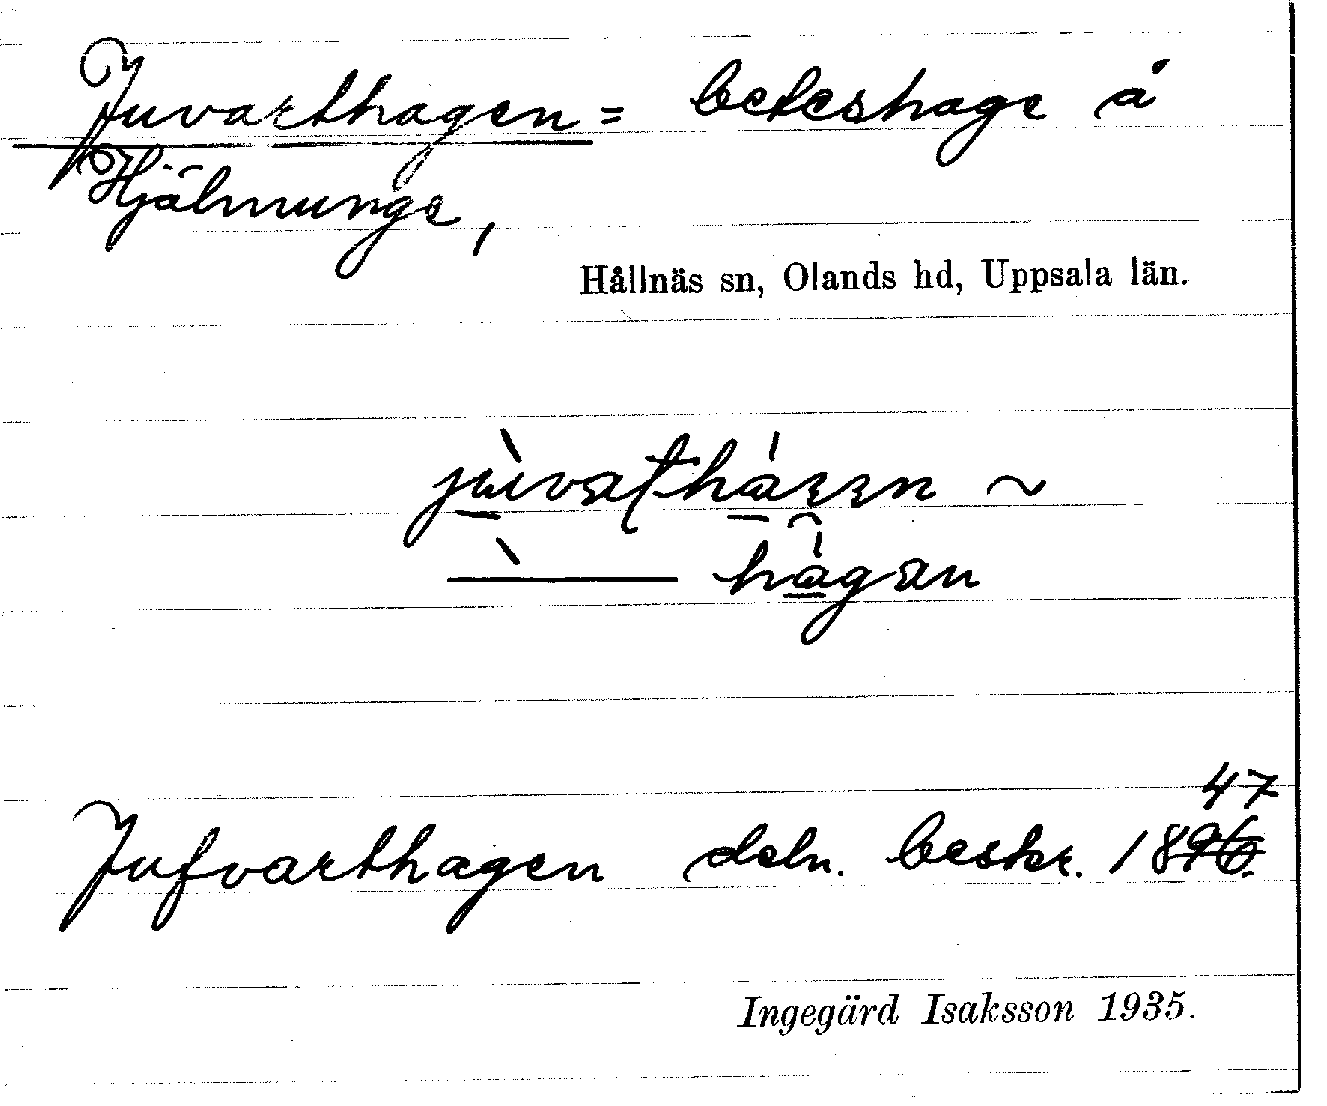 Juvarthagen = beteshage å
Hjälmunge,
Hållnäs sn, Olands hd, Uppsala län.
hågan
Jufvarthagen deln. beskr. 1847
Ingegärd Isaksson 1935.